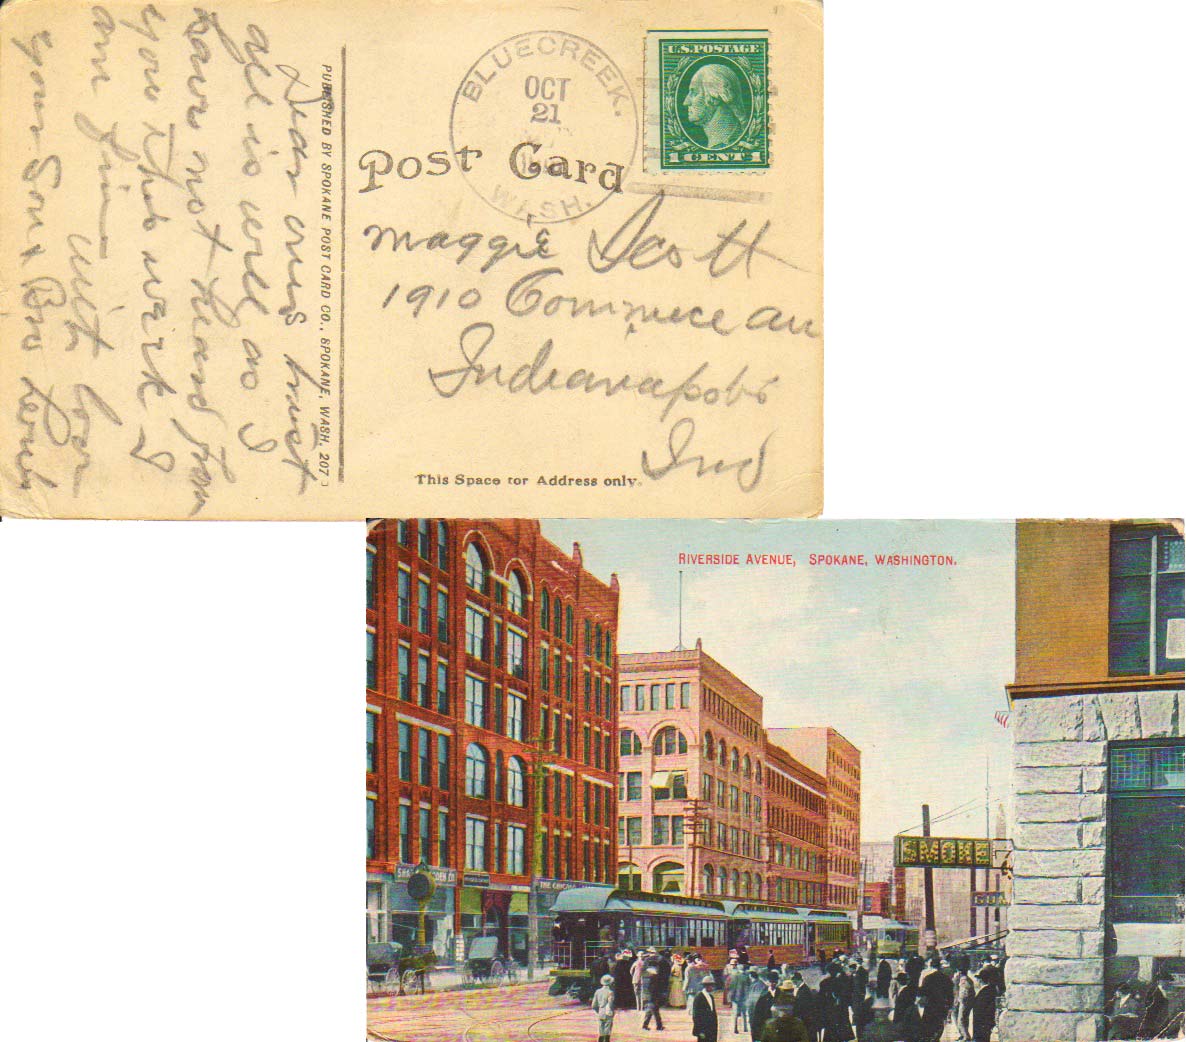 Dear ones trust
all is well as I
have not heard from
you this work I
am fine with love
your Son & Bro
PUBLISHED BY SPOKANE POST CARD CO., SPOKANE, WASH. 207
BLUECREEK.
OCT
21
WASH.
U.S. POSTAGE
1 CENT 1
Post Card
Maggie Scott
1910 Commerce Av
Indianapolis
Ind
This Space for Address only.
RIVERSIDE AVENUE, SPOKANE, WASHINGTON.
SMOKE
THE CHICAGO